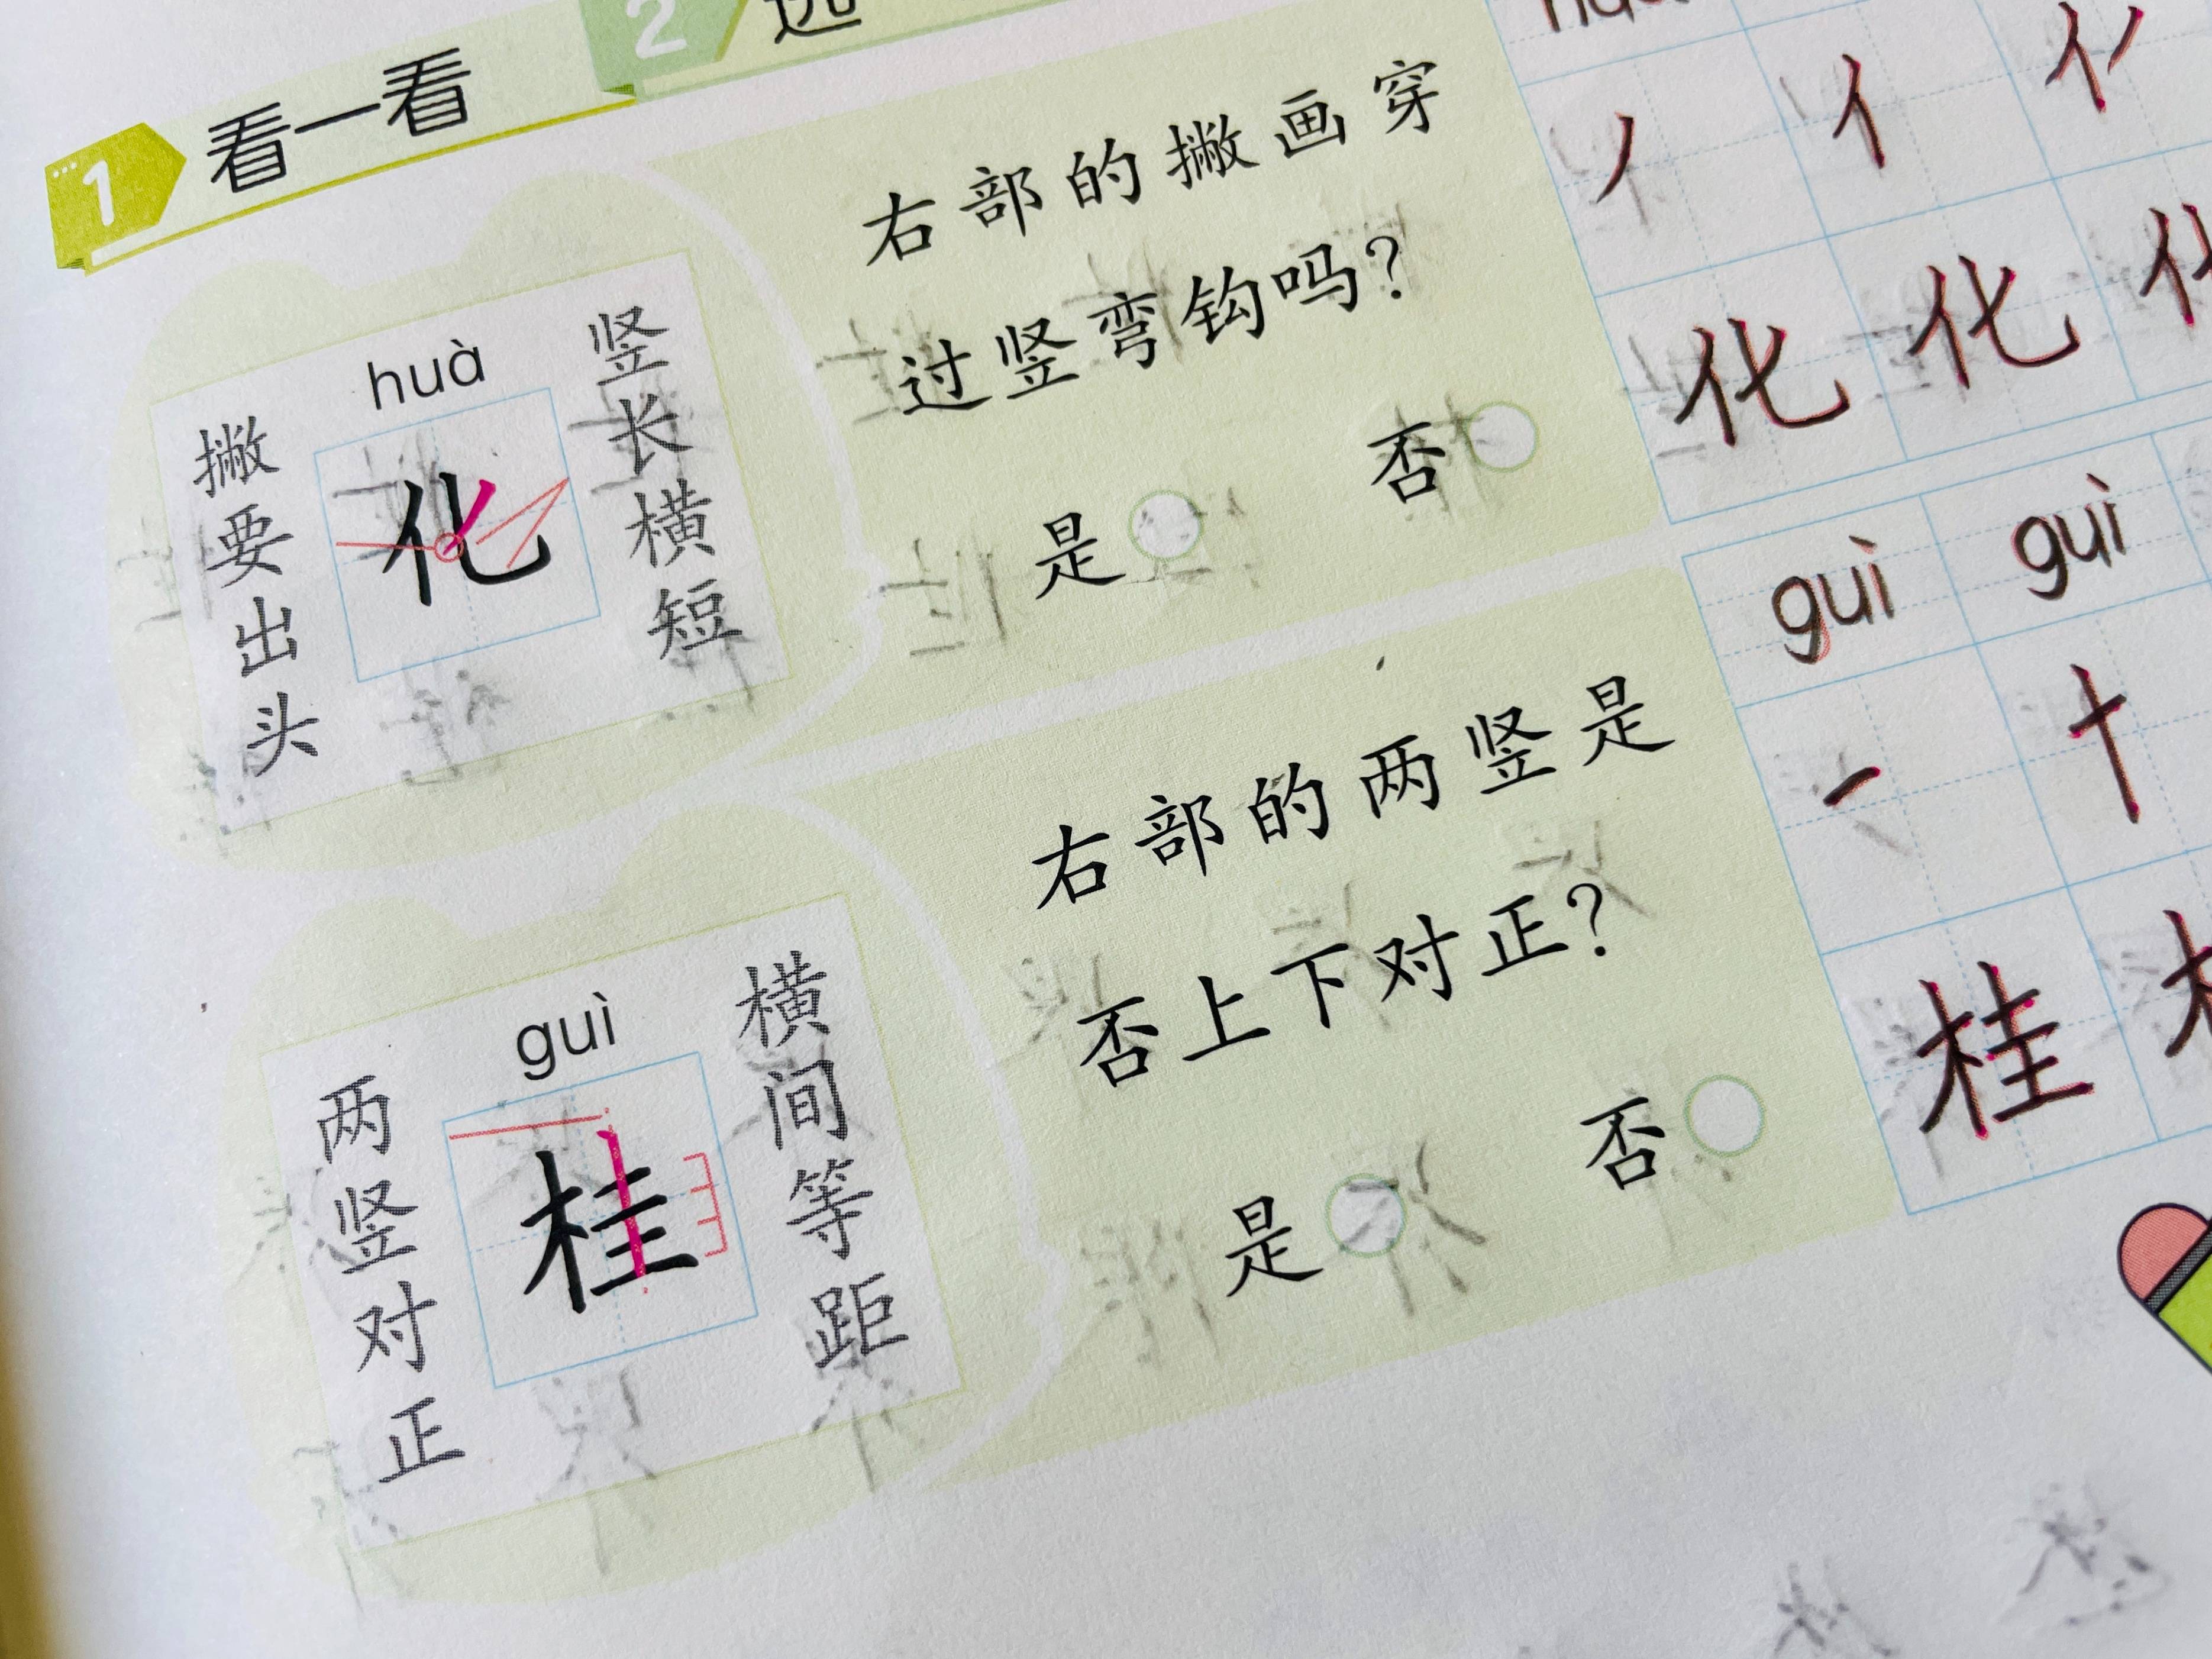 1 看一看
2 选
huà
撇要出头
化
竖长横短
右部的撇画穿
过竖弯钩吗？
是 否
guì
两竖对正
桂
横间等距
右部的两竖是
否上下对正？
是 否
丿 亻
化 化
guì guì
一 十
桂